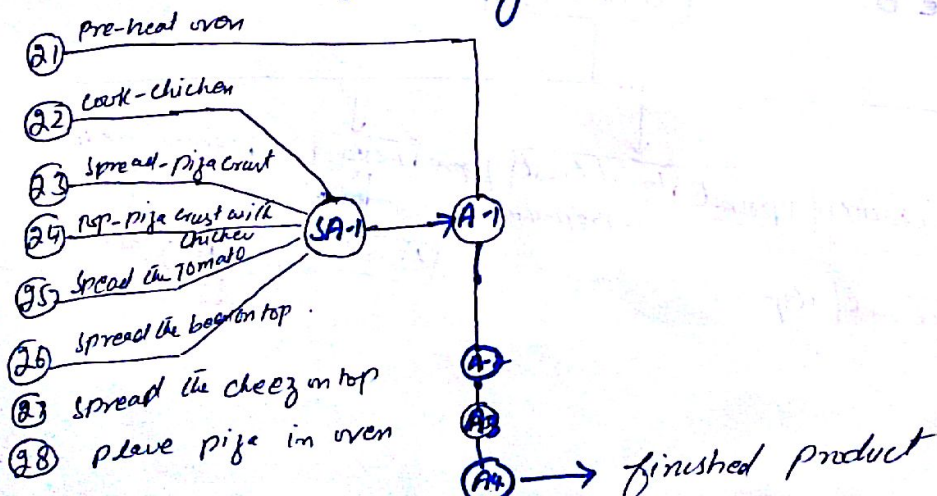 21 Pre-heat oven
22 Cook-chicken
23 Spread-piza crust
24 Top-piza crust with
chicken
25 Spead the Tomato
26 Spread the on top.
27 Spread the cheez on top
28 plave piza in oven
SA-1
A-1
A-2
A3
A4
finished product